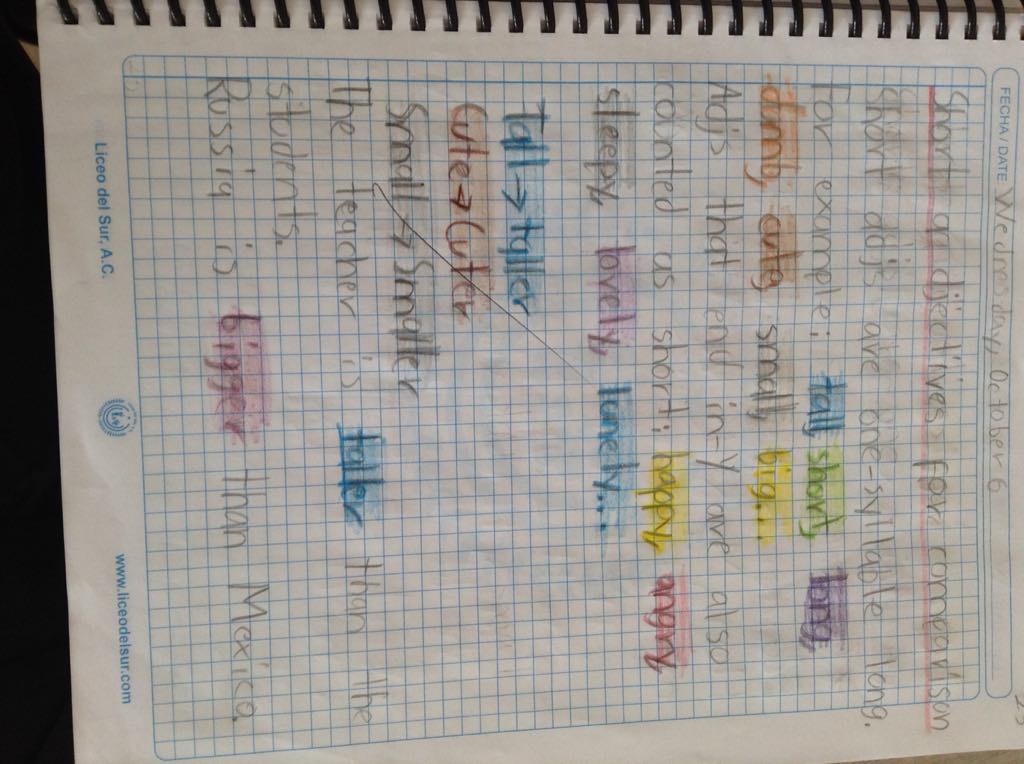 FECHA / DATE Wednesday, October 6
Short adjectives for comparison
Short adjs are one-syllable long.
For example: tall, short, long,
dumb, cute, small, big...
Adjs that end in -y are also
counted as short: happy, angry
sleepy, lovely, lonely...
Tall → taller
Cute → Cuter
Small → Smaller
The teacher is taller than the
students.
Russia is bigger than Mexico.
Liceo del Sur, A.C.
www.liceodelsur.com